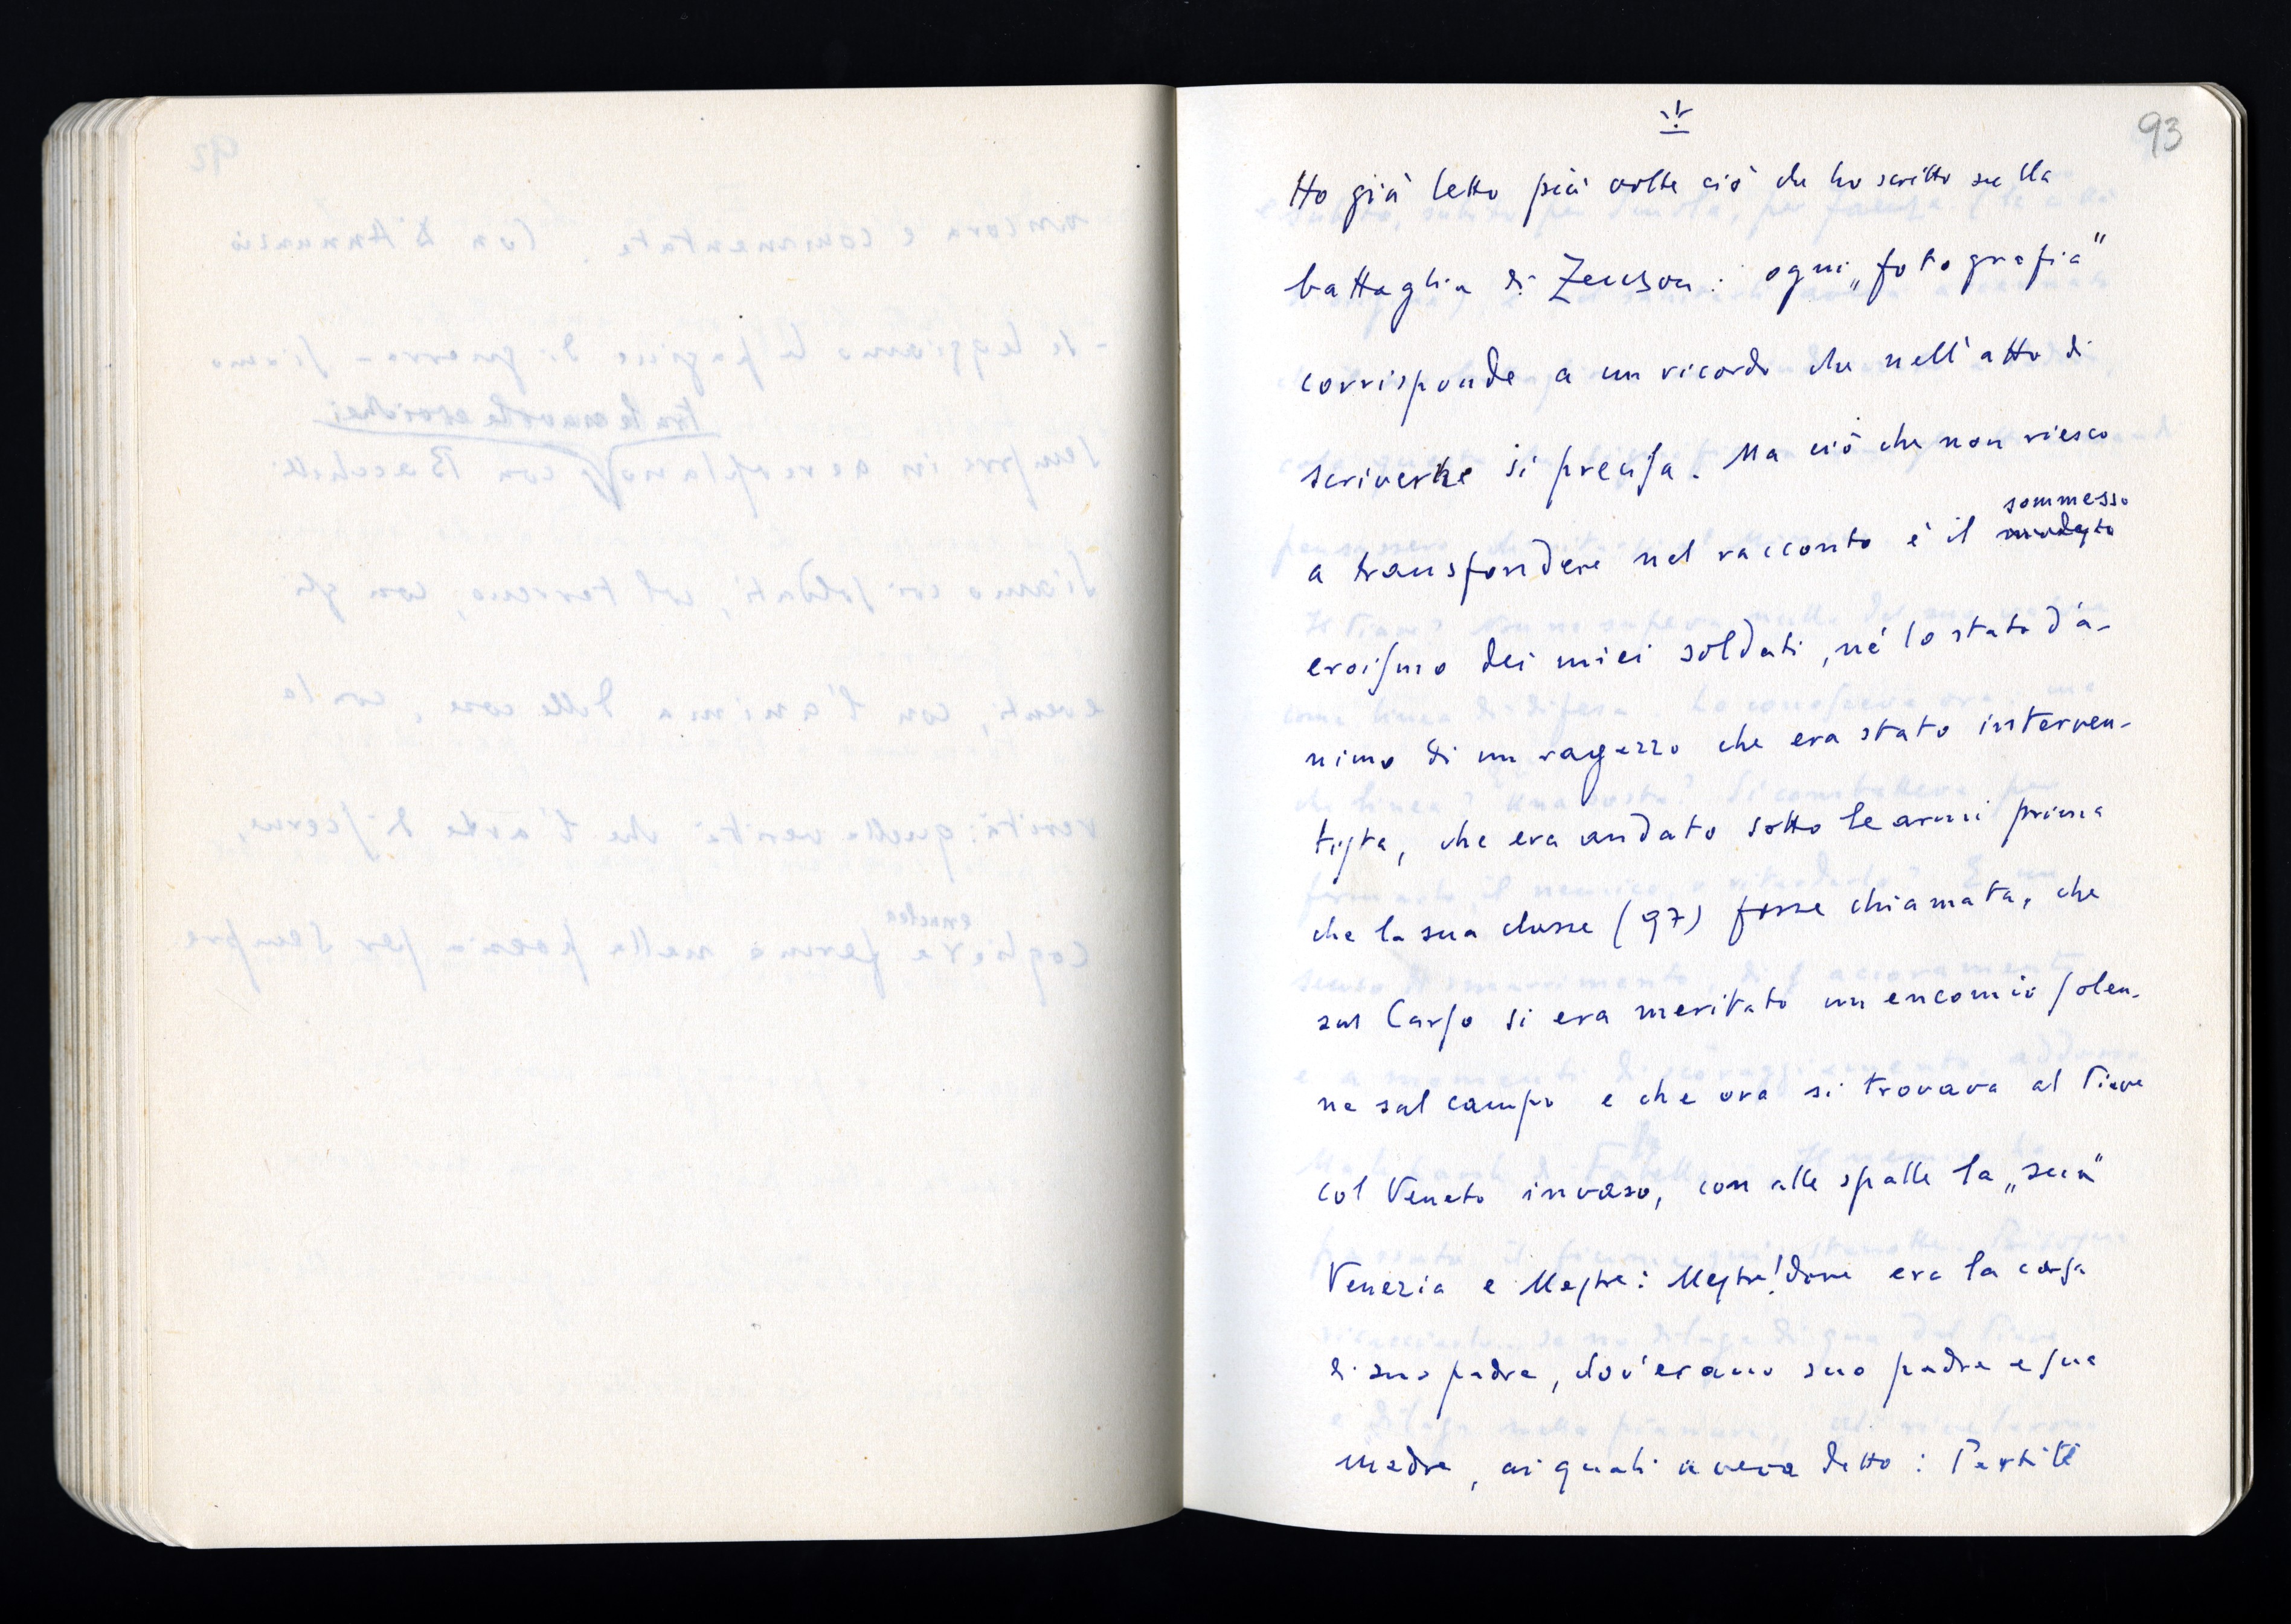 93
Ho già letto più volte ciò che ho scritto sulla
battaglia di Zenson: ogni „fotografia"
corrisponde a un ricordo che nell'atto di
scriverne si precisa. Ma ciò che non riesco
sommesso
a transfondere nel racconto è il modesto
eroismo dei miei soldati, né lo stato d'a-
nimo di un ragazzo che era stato interven-
tista, che era andato sotto le armi prima
che la sua classe (97) fosse chiamata, che
sul Carso si era meritato un encomio solen-
ne sul campo e che ora si trovava al Piave
col Veneto invaso, con alle spalle la „sua"
Venezia e Mestre: Mestre! dove era la casa
di suo padre, dov'erano suo padre e sua
madre, ai quali aveva detto: Partite